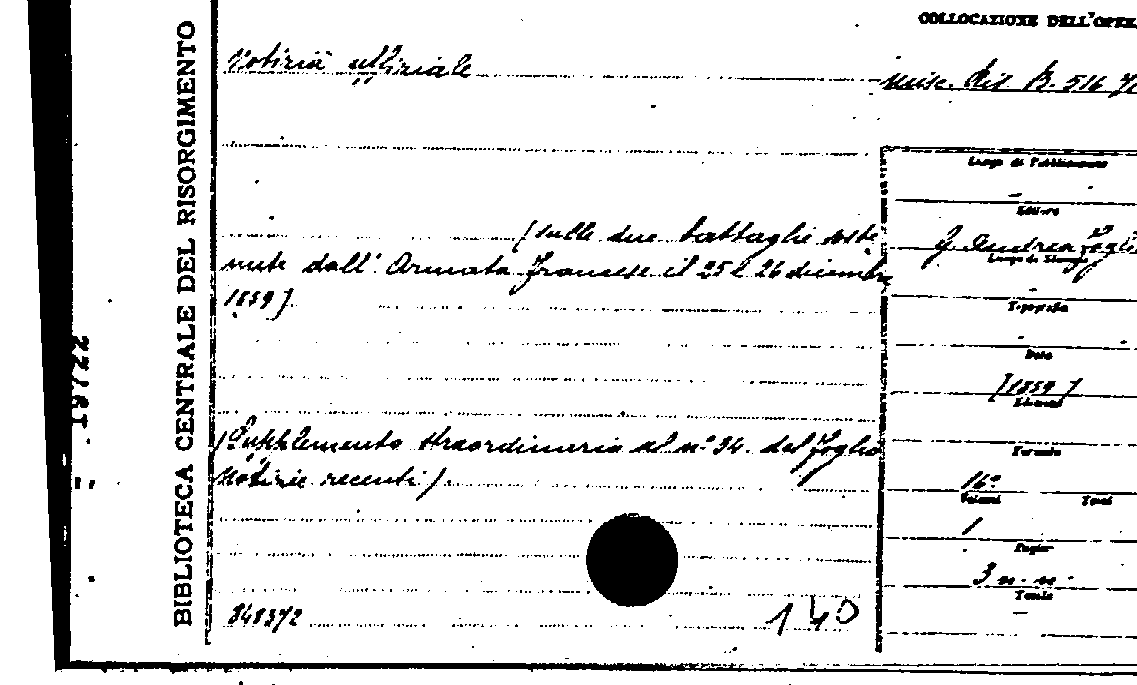 BIBLIOTECA CENTRALE DEL RISORGIMENTO
COLLOCAZIONE DELL'OPER
Notizia uffiziale
Misc. Ris. B. 516
Luogo di Pubblicazione
(sulle due battaglie soste
nute dall' Armata Francese il 25 e 26 dicembre
1859)
Editore
Luogo di Stampa
Tipografia
Data
[1859]
Edizione
(Supplemento straordinario al nº 34. del foglio
Notizie recenti).
Formato
16º
Volumi
Tomi
1
Pagine
3 n. n.
Tavole
348372
140